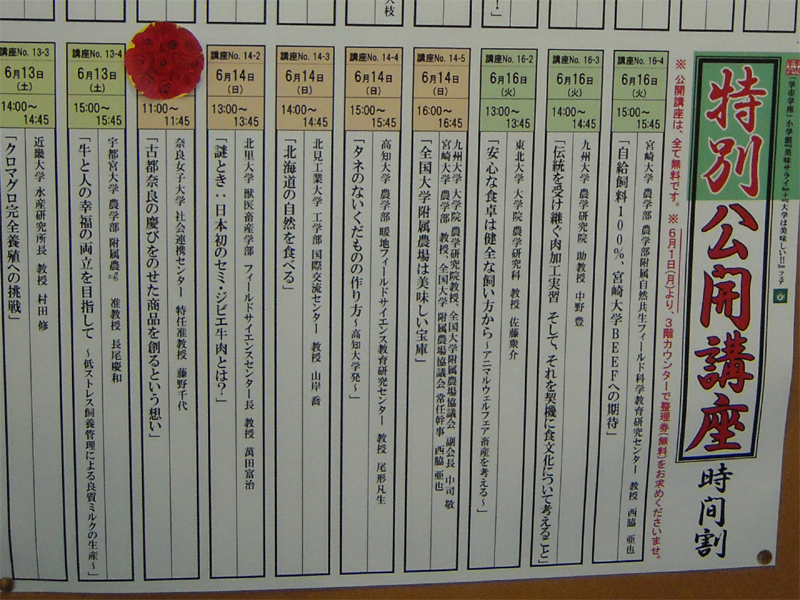 特別公開講座 時間割
※公開講座は、全て無料です。 ※6月1日(月)より、3階カウンターで整理券(無料)をお求めくださいませ。
講座No. 16-4
6月16日
(火)
15:00~
15:45
宮崎大学 農学部 農学部附属自然共生フィールド科学教育研究センター 教授 西脇 亜也
「自給飼料100%、宮崎大学BEEFへの期待」
講座No. 16-3
6月16日
(火)
14:00~
14:45
九州大学 農学研究院 助教授 中野 豊
「伝統を受け継ぐ肉加工実習 そして、それを契機に食文化について考えること」
講座No. 16-2
6月16日
(火)
13:00~
13:45
東北大学 大学院 農学研究科 教授 佐藤衆介
「安心な食卓は健全な飼い方から~アニマルウェルフェア畜産を考える~」
講座No. 14-5
6月14日
(日)
16:00~
16:45
九州大学 大学院 農学研究院教授、全国大学附属農場協議会 副会長 中司 敬
宮崎大学 農学部 教授、全国大学 附属農場協議会 常任幹事 西脇 亜也
「全国大学附属農場は美味しい宝庫」
講座No. 14-4
6月14日
(日)
15:00~
15:45
高知大学 農学部 暖地フィールドサイエンス教育研究センター 教授 尾形凡生
「タネのないくだものの作り方~高知大学発~」
講座No. 14-3
6月14日
(日)
14:00~
14:45
北見工業大学 工学部 国際交流センター 教授 山岸 喬
「北海道の自然を食べる」
講座No. 14-2
6月14日
(日)
13:00~
13:45
北里大学 獣医畜産学部 フィールドサイエンスセンター長 教授 萬田富治
「謎とき:日本初のセミ・ジビエ牛肉とは?」
11:00~
11:45
奈良女子大学 社会連携センター 特任准教授 藤野千代
「古都奈良の慶びをのせた商品を創るという想い」
講座No. 13-4
6月13日
(土)
15:00~
15:45
宇都宮大学 農学部 附属農場 准教授 長尾慶和
「牛と人の幸福の両立を目指して ~低ストレス飼養管理による良質ミルクの生産~」
講座No. 13-3
6月13日
(土)
14:00~
14:45
近畿大学 水産研究所長 教授 村田 修
「クロマグロ完全養殖への挑戦」